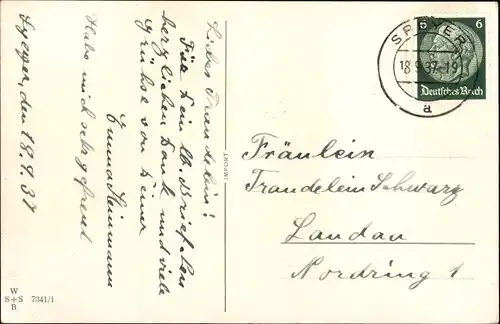 Liebes Traudelein!
Für Dein lb. Brieflein
herzlichen Dank und viele
Grüße von Deiner
Emma
Habe mich sehr gefreut
Speyer, den 18.9.37
W
S+S 7341/1
B
IMPORT
SPEYER
18.9.37.-18
a
6 6
Deutsches Reich
Fräulein
Traudelein Schwarz
Landau
Nordring 1